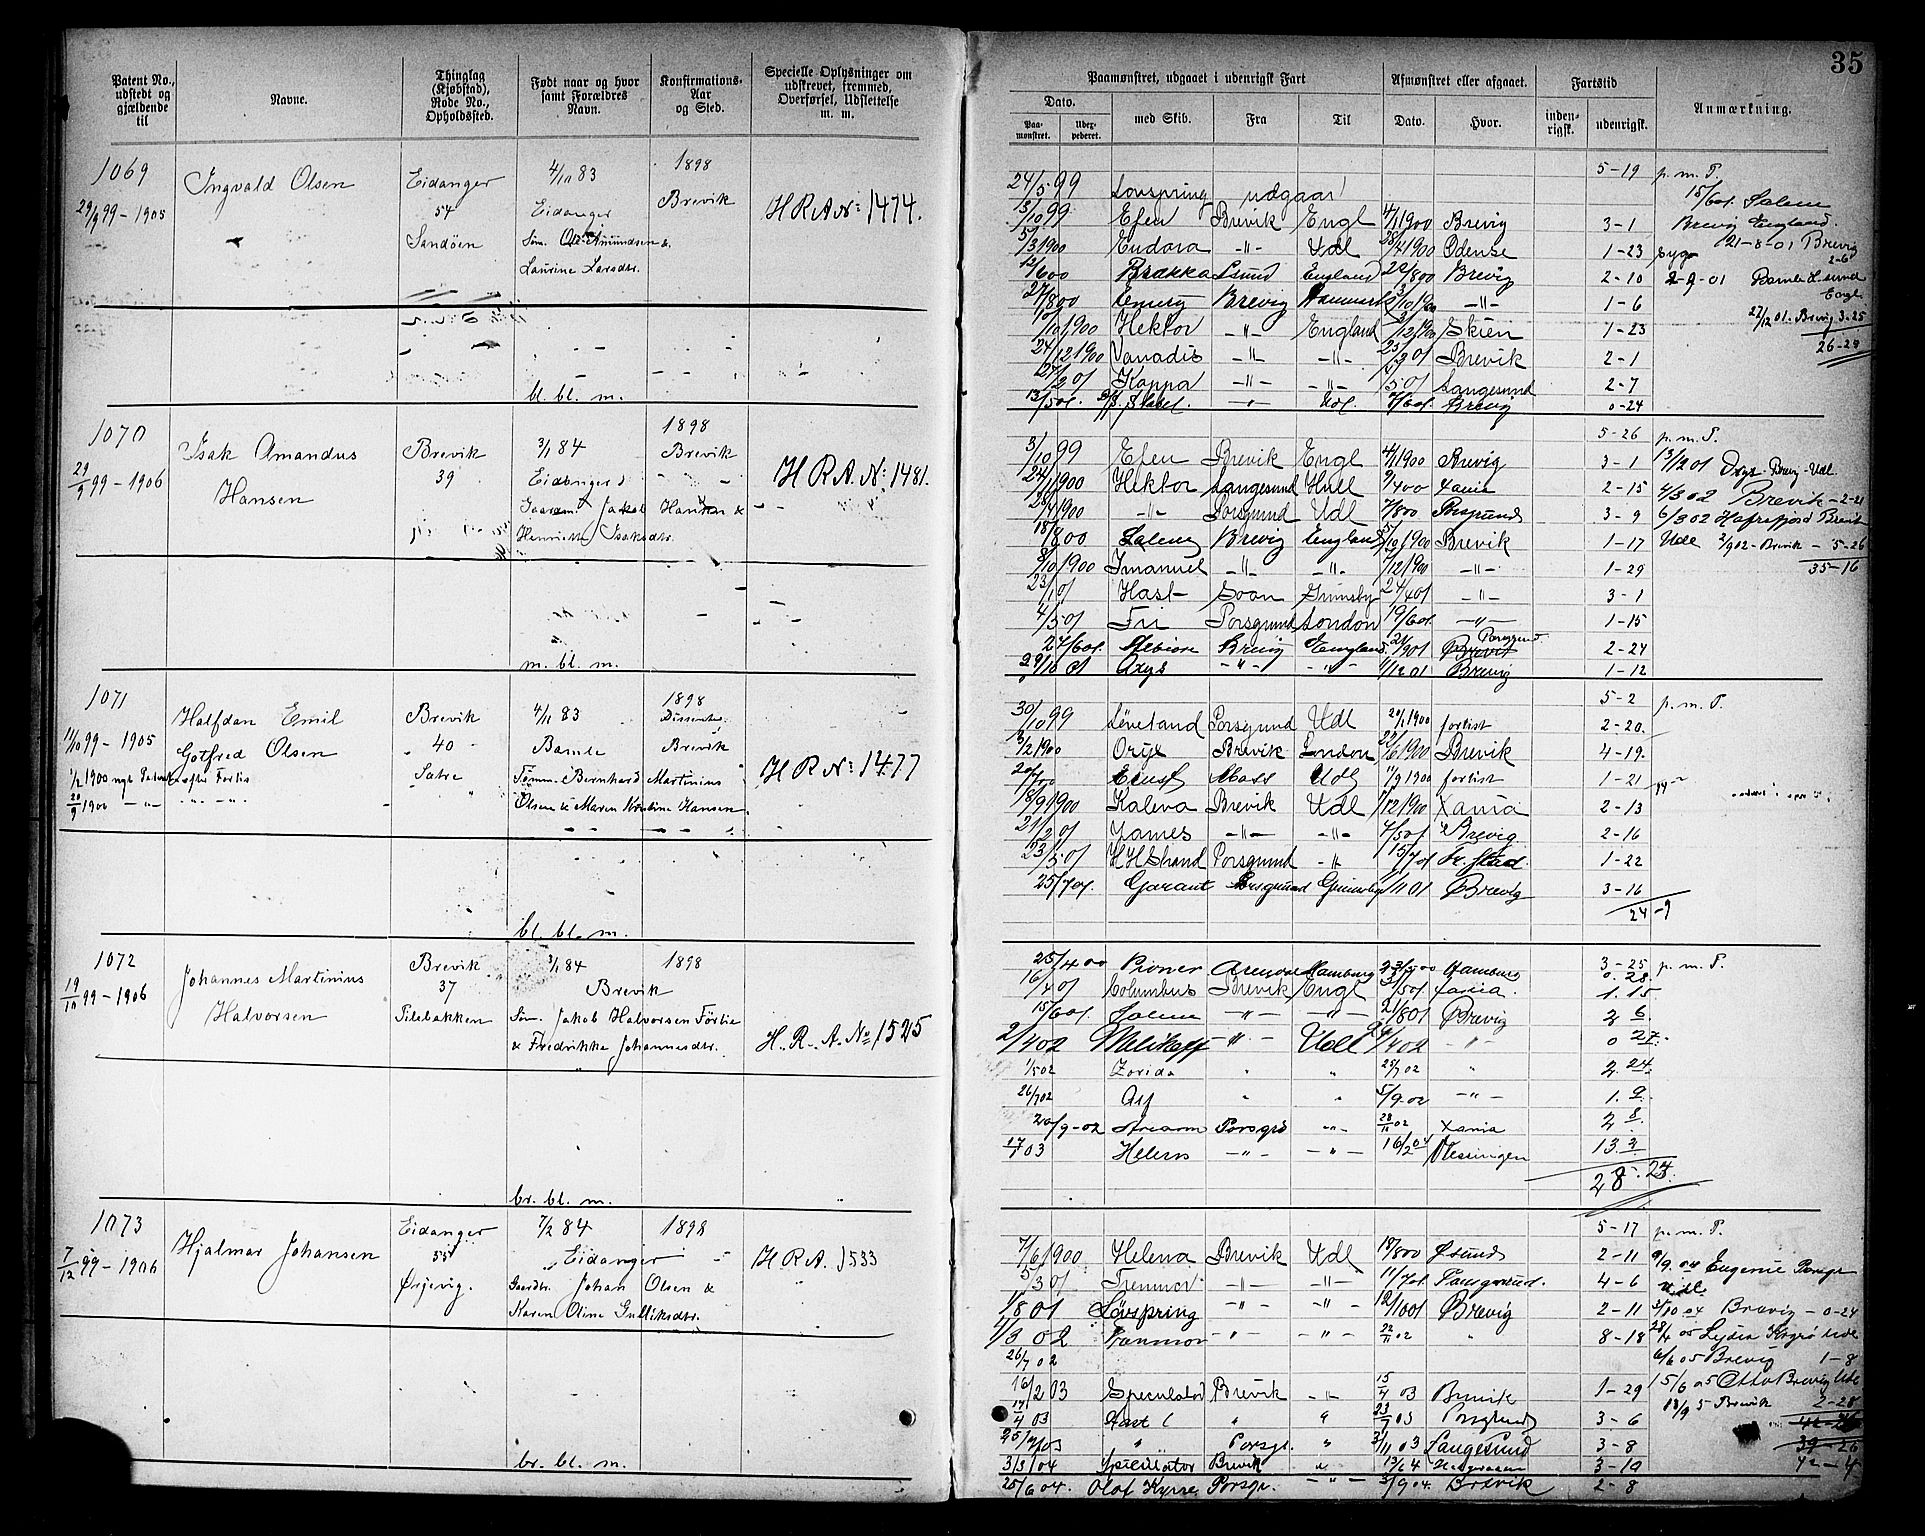 35
Patent No., udstedt og gjældende til
Navne.
Thinglag (Kjøbstad), Rode No., Opholdssted.
Født naar og hvor samt Forældres Navn.
Konfirmations-Aar og Sted.
Specielle Oplysninger om udskrevet, fremmed, Overførsel, Udslettelse m. m.
Paamønstret, udgaaet i udenrigsk Fart
Afmønstret eller afgaaet.
Fartstid
Anmærkning.
Dato.
Paa-mønstret.
med Skib.
Fra
Til
Dato.
Hvor.
inden-rigsk.
udenrigsk.
1069
29/9 99 - 1905
Ingvald Olsen
Eidanger
54
Sandöen
4/11 83
Eidanger
Søn. Ole Amundsen &
Laurine Larsdtr.
1898
Brevik
H R A No 1474.
bl. bl. m.
5-19 p. m. T.
24/5 99 Lovspring udgaar
3/10 99 Efeu Brevik Engl 4/1 1900 Brevig 3-1
5/3 1900 Eudora -"- Udl 28/4 1900 Odense 1-23
12/6 00 Brækka Lsund England 22/8 00 Brevig 2-10
27/8 00 Emery Brevig 3/10 1900 -"- 1-6
/10 1900 Hektor -"- England /12 1900 Skien 1-23
24/12 1900 Vanadis -"- -"- 25/2 01 Brevik 2-1
27/2 01 Kappa -"- -"- /5 01 Langesund 2-7
13/5 01. Udl. /6 01. Brevig 0-24
15/6 01. Salem
Brevig England.
21-8-01 Brevig
2-6
2-9-01 Bamle Lsund
Engl
22/12 01. Brevig 3-25
26-24
1070
29/9 99 - 1906
Isak Amandus
Hansen
Brevik
39
3/1 84
Eidanger
Gaardm. Jakob Hansen &
Henriette Isaksdtr.
1898
Brevik
H R A. No: 1481.
m. bl. m.
5-26 p. m. T.
3/10 99 Efeu Brevik Engl 4/1 1900 Brevig 3-1
24/1 1900 Hektor Langesund Hull 9/4 00 Xania 2-15
28/4 1900 -"- Porsgrund Udl 7/8 00 Porsgrund 3-9
18/8 00 Salem Brevig England 5/10 1900 Brevik 1-17
8/10 1900 Imanuel -"- -"- 7/12 1900 -"- 1-29
23/1 01 Hast Soon Grimsby 24/4 01 -"- 3-1
4/5 01 Fri Porsgrund London 19/6 01. -"- 1-15
24/6 01. Brevig England. 21/9 01 Porsgrund. Brevik 2-24
29/10 01 Oxys -"- -"- 11/12 01 Brevig 1-12
13/12 01 Oxys Brevig - Udl
4/3 02 Brevik - 2-21
6/3 02 Hafrsfjord Brevik
Udl 2/9 02 - Brevik - 5-26
35-16
1071
11/10 99 - 1905
1/2 1900 nyt Patent efter Forlis
20/9 1900 -"- "-"-"-
Halfdan Emil
Gotfred Olsen
Brevik
40
Sætre
4/11 83
Bamle
Tømm. Bernhard Martinius
Olsen & Maren Kristine Hansen
1898
Dissenter
Brevik
H R No: 1477
bl. bl. m.
5-2 p. m. T.
30/10 99 Løveland Porsgrund Udl 20/1 1900 forlist 2-20.
3/2 1900 Oryx Brevik London 22/6 1900 Brevik 4-19.
20/7 00 Ernst Moss Udl 11/9 1900 forlist 1-21
18/9 1900 Kaleva Brevik Udl 1/12 1900 Xania 2-13
21/2 01 James -"- -"- 7/5 01 Brevig 2-16
23/5 01 H H Strand Porsgrund -"- 15/7 01 Fr. stad. 1-22
25/7 01. Garant Porsgrund Grimsby 11/11 01 Brevig 3-16
24-9
1072
19/10 99 - 1906
Johannes Martinius
Halvorsen
Brevik
37
Pilebakken
3/1 84
Brevik
Søn. Jakob Halvorsen Förlie
& Fredrikke Johannesdtr.
1898
H. R. A. No 1525
br. bl. m.
3-25 p. m. T.
25/4 00 Pioner Arendal Hamburg 23/5 00 Hamburg 0.28
16/4 01 Columbus Brevik Engl /5 01 Xania. 1.15
15/6 01. Salem -"- -"- 21/8 01 Brevig 2 6.
2/4 02 Melikoff -"- Udl 29/4 02 -"- 0 27.
1/5 02 Zorida " " 25/7 02 " 2.24.
26/7 02 Asf " " 5/9-02 -"- 1.9.
20/9-02 Porsgr. -"- 28/11 02 Xania 2 8.
17/1 03 Helios -"- -"- 16/2 04 Vlessingen 13.3
28.24
1073
7/12 99 - 1906
Hjalmar Johansen
Eidanger
55
Ørjevig.
7/2 84
Eidanger
Gaardbr. Johan Olsen &
Karen Oline Gulliksdtr.
1898
H R A. 1533
br. bl. m.
5-17 p. m. T.
7/6 1900 Helena Brevik Udl 18/8 00 Øsund 2-11
5/3 01 Tremmor -"- -"- 11/7 01. Porsgrund. 4-6
1/8 01 Lövspring -"- -"- 12/10 01 Brevig 2-11
1/3 02 -"- -"- 22/11 02 " 8-18
26/7 02
16/2 03 Brevik -"- 15/4 03 Brevik 1-29
17/4 03 Hast " " 23/7 03 Porsgrund 3-6
25/7 03 " Porsgr. " 3/11 03 Langesund 3-8
3/3 04 Speculator Brevik " 13/6 4 3-10
25/6 04. Olaf Kyrre Porsgr. -"- 3/9 04. Brevik 2-8
9/9. 04 Eugenie Porsgr
Udl.
3/10 04 Brevig - 0-24
28/4 05 Lydia Udl
6/6 05 Brevig 1-8
15/6 05 Otto Brevig Udl
18/9 5 Brevik 2-28
39-26
42-4